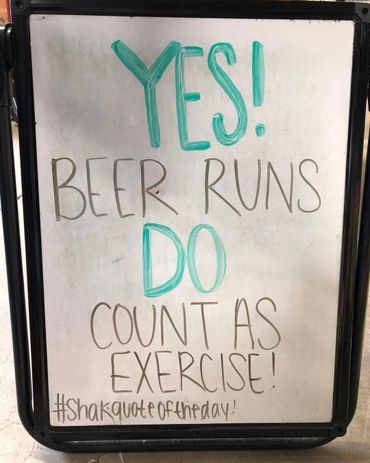 YES!
BEER RUNS
DO
COUNT AS
EXERCISE!
#Shakquoteoftheday!